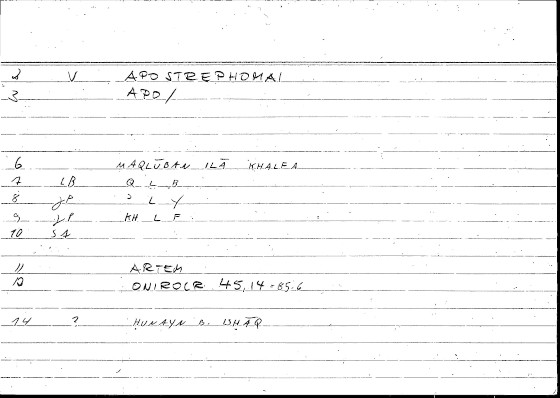 2 V APOSTREPHOMAI
3 APO/
6 MAQLŪBAN ILĀ KHALFA
7 LB Q L B
8 JP ʾ L Y
9 JP KH L F
10 SA
11 ARTEM
12 ONIROCR 45,14-85.6
14 ? ḤUNAYN B. ISḤĀQ